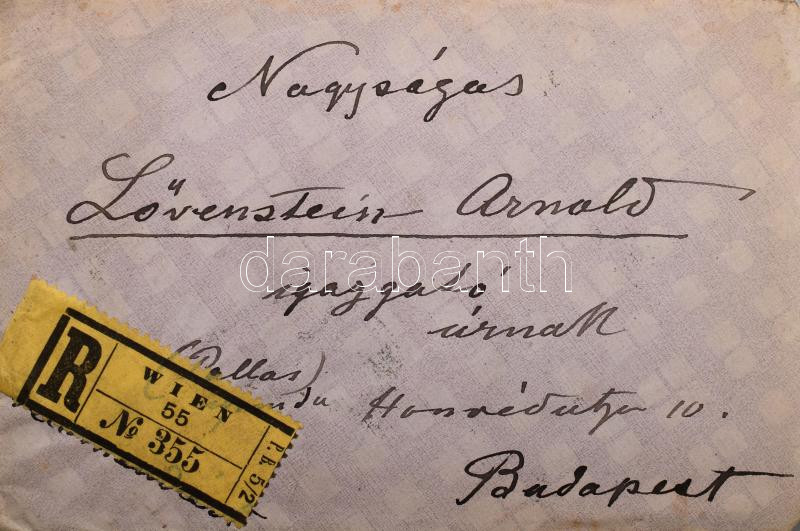 Nagyságas
Lővenstein Arnold
igazgató
úrnak
(Pallas)
Honvédutza 10.
Budapest
R
WIEN
55
№ 355
P.B. 5/2
darabanth